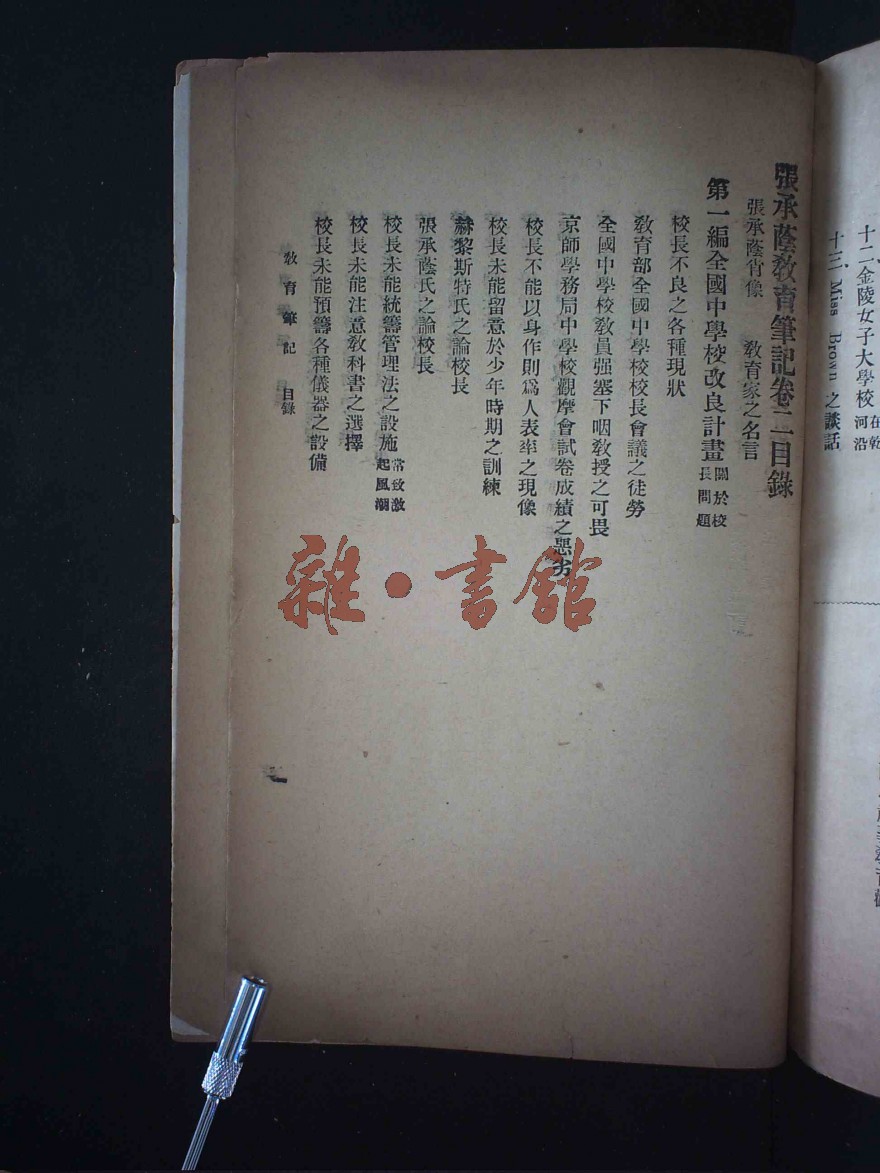 十二、金陵女子大學校 在乾河沿
十三、Miss Brown 之談話
張承蔭教育筆記卷二目錄
張承蔭肖像 教育家之名言
第一編全國中學校改良計畫 關於校長問題
校長不良之各種現狀
教育部全國中學校校長會議之徒勞
全國中學校教員强塞下咽教授之可畏
京師學務局中學校觀摩會試卷成績之惡劣
校長不能以身作則爲人表率之現像
校長未能留意於少年時期之訓練
赫黎斯特氏之論校長
張承蔭氏之論校長
校長未能統籌管理法之設施 常致激起風潮
校長未能注意教科書之選擇
校長未能預籌各種儀器之設備
教育筆記 目錄
一
雜·書館